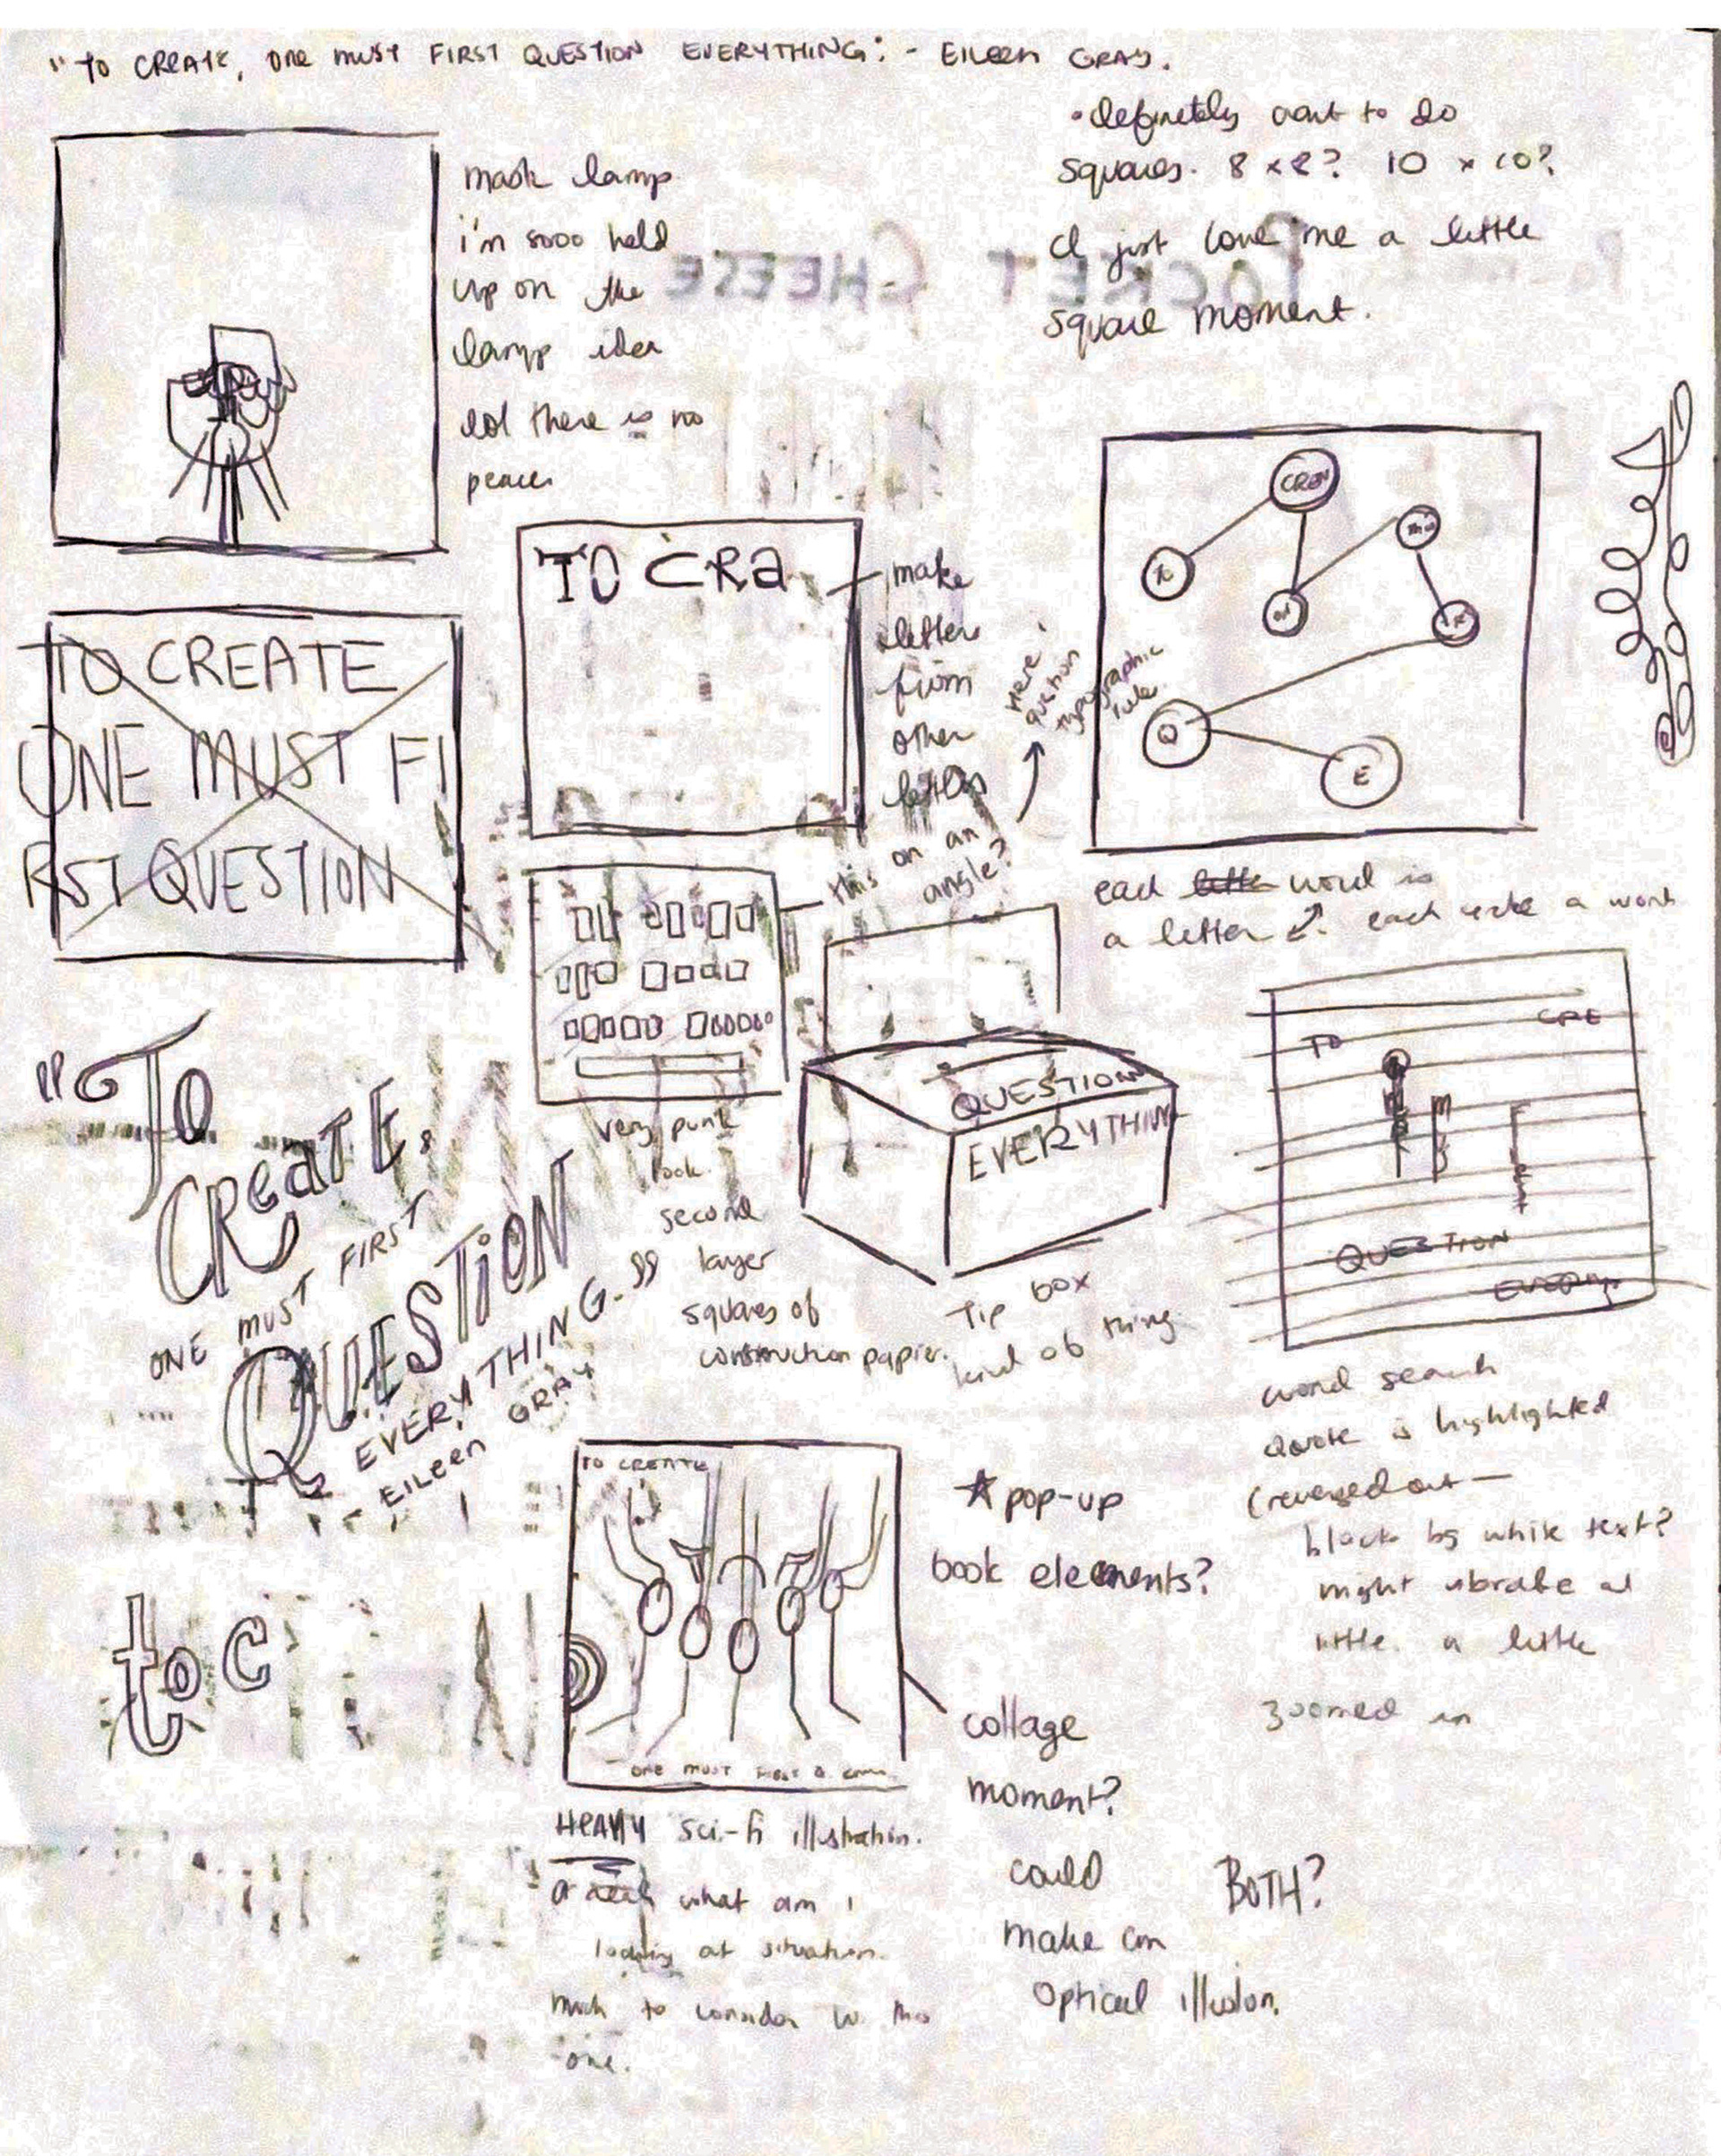 "TO CREATE, ONE MUST FIRST QUESTION EVERYTHING." - EILEEN GRAY.
• definetely want to do
squares. 8 x 8? 10 x 10?
I just love me a little
square moment.
mask lamp
i'm sooo held
up on the
lamp idea
lol there is no
peace
POCKET CHEESE
TO CRA
make
letters
from
other
letters
this on an
angle?
here
question
typographic
rule.
CREA
TO
Q
E
each word is
a letter
TO CREATE
ONE MUST FI
RST QUESTION
very punk
look.
second
layer
squares of
construction paper.
QUESTION
EVERYTHING
Tip box
kind of thing
TO CRE
QUESTION
word search
quote is highlighted
(reversed out—
black bg white text?
might vibrate a
little. a little
zoomed in
"To
CREATE,
ONE MUST FIRST
QUESTION
EVERYTHING."
EILEEN GRAY
to C
TO CREATE
ONE MUST FIRST Q
HEAVY sci-fi illustration.
a what am i
looking at situation.
much to consider w this
one.
★ pop-up
book elements?
collage
moment?
could
make an
optical illusion.
BOTH?